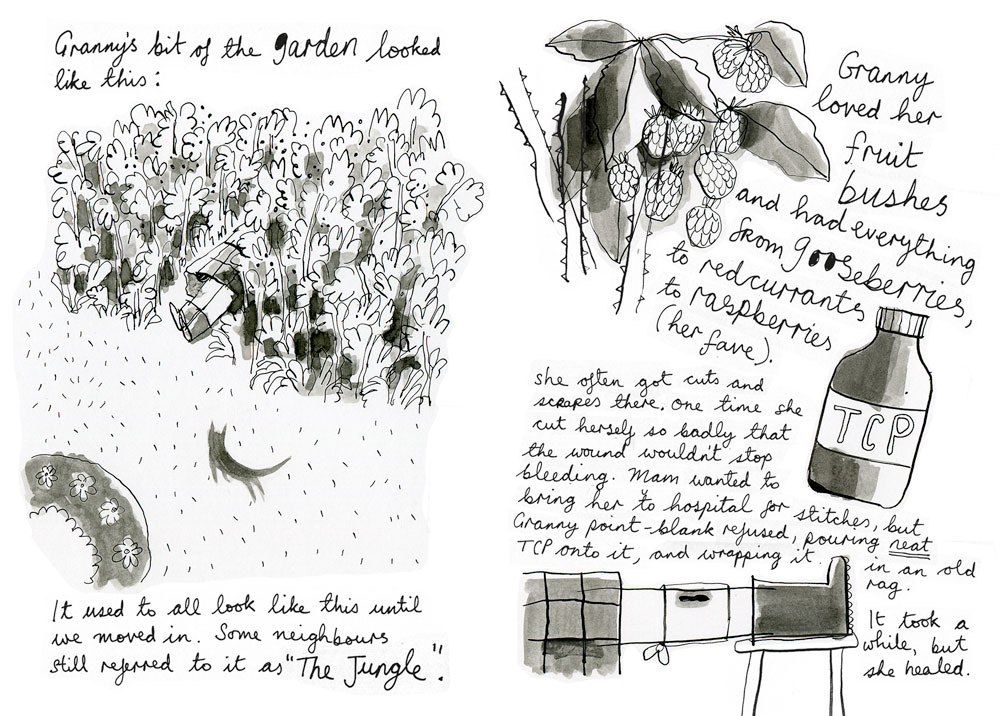 Granny's bit of the garden looked
like this:
It used to all look like this until
we moved in. Some neighbours
still referred to it as "The Jungle".
Granny
loved her
fruit
bushes
and had everything
from gooseberries,
to redcurrants
to raspberries
(her fave).
TCP
she often got cuts and
scrapes there. One time she
cut herself so badly that
the wound wouldn't stop
bleeding. Mam wanted to
bring her to hospital for stitches, but
Granny point-blank refused, pouring neat
TCP onto it, and wrapping it
in an old
rag.
It took a
while, but
she healed.